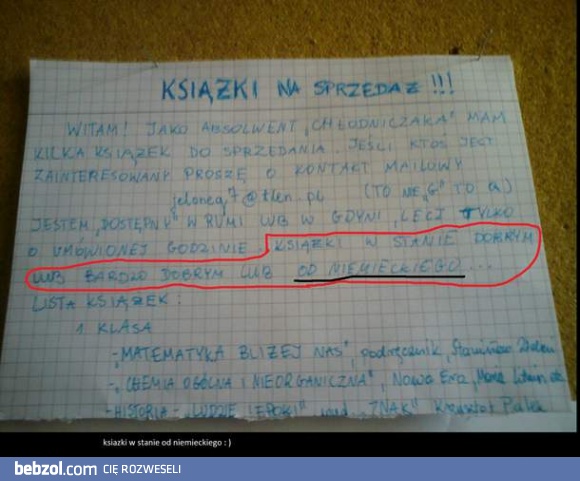 KSIĄŻKI NA SPRZEDAŻ !!!
WITAM! JAKO ABSOLWENT „CHŁODNICZAKA" MAM
KILKA KSIĄŻEK DO SPRZEDANIA. JEŚLI KTOŚ JEST
ZAINTERESOWANY PROSZĘ O KONTAKT MAILOWY
(TO NIE „G" TO Q)
JESTEM „DOSTĘPNY" W RUMI LUB W GDYNI, LECZ TYLKO
O UMÓWIONEJ GODZINIE. KSIĄŻKI W STANIE DOBRYM
LUB BARDZO DOBRYM LUB OD NIEMIECKIEGO...
LISTA KSIĄŻEK:
1 KLASA
- „MATEMATYKA BLIŻEJ NAS", podręcznik, Stanisław
- „CHEMIA OGÓLNA I NIEORGANICZNA", Nowa Era, Maria
- HISTORIA - „LUDZIE I EPOKI" „ZNAK" Krzysztof
ksiazki w stanie od niemieckiego : )
bebzol.com CIĘ ROZWESELI